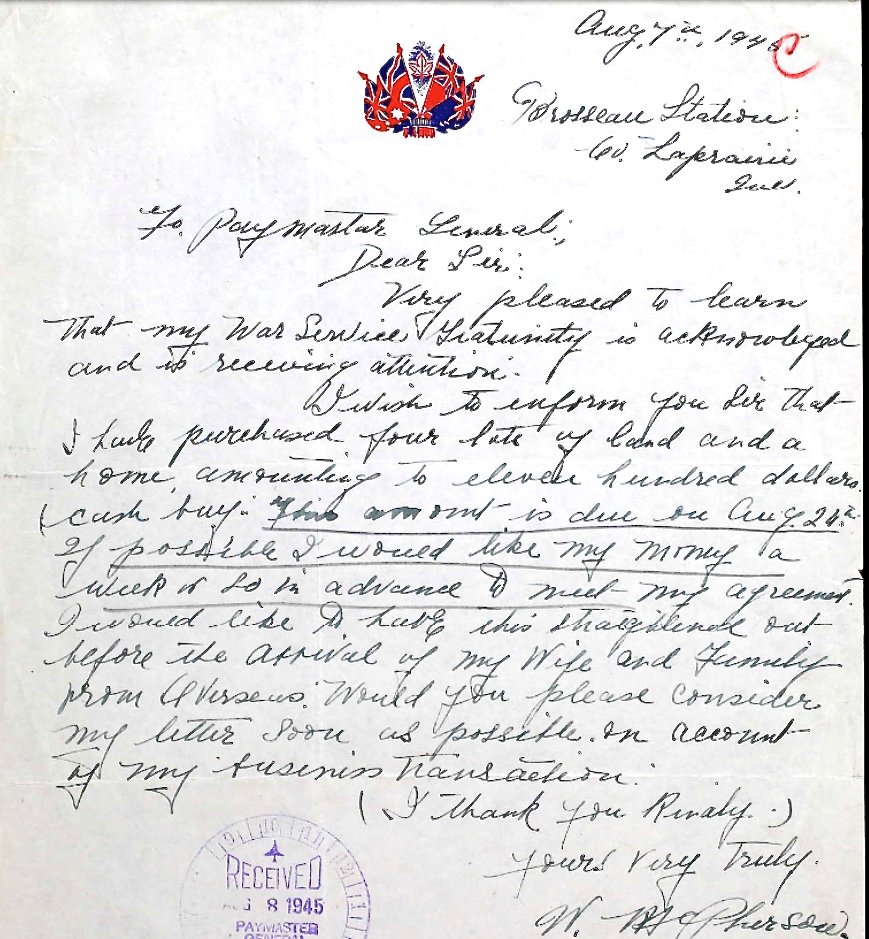 Aug. 7th, 1945
Brosseau Station:
Co. Laprairie
Que.
To. Paymastar General;
Dear Sir:
Very pleased to learn
that my War Service Gratunity is acknowleged
and is receiving attention.
I wish to inform you Sir that
I have purchased four lots of land and a
home, amounting to eleven hundred dollars.
(cash buy: This amount is due on Aug. 24th.
If possible I would like my money a
week or so in advance to meet my agreement.
I would like to have this straightened out
before the arrival of my Wife and Family
from Overseas. Would you please consider
my letter soon as possible. on account
of my business transaction.
(I thank you Kindly.)
Yours Very Truly.
W. McPherson.
RECEIVED
8 1945
PAYMASTER
GENERAL